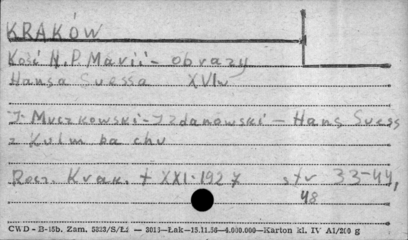 KRAKÓW
Kość N.P. Marii - obrazy
Hansa Suessa XVI w
J Muczkowski - J Zdanowski - Hans Suess
z Kulmbachu
Rocz. Krak. t XXI - 1927 str 33-44,
48
CWD - B-15b. Zam. 5823/S/Łż — 3013—Łak—15.11.56—4.000.000—Karton kl. IV A1/200 g